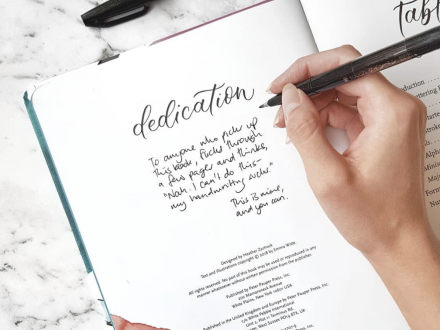 dedication
To anyone who picks up
this book, flicks through
a few pages and thinks,
"Nah. I can't do this –
my handwriting sucks."
This is mine,
and you can.
Designed by Heather Zschock
Text and illustrations copyright © 2018 by Emma Witte
All rights reserved. No part of this book may be used or reproduced in any
manner whatsoever without written permission from the publisher.
Published by Peter Pauper Press, Inc.
202 Mamaroneck Avenue
White Plains, New York 10601 USA
Published in the United Kingdom and Europe by Peter Pauper Press, Inc.
c/o White Pebble International